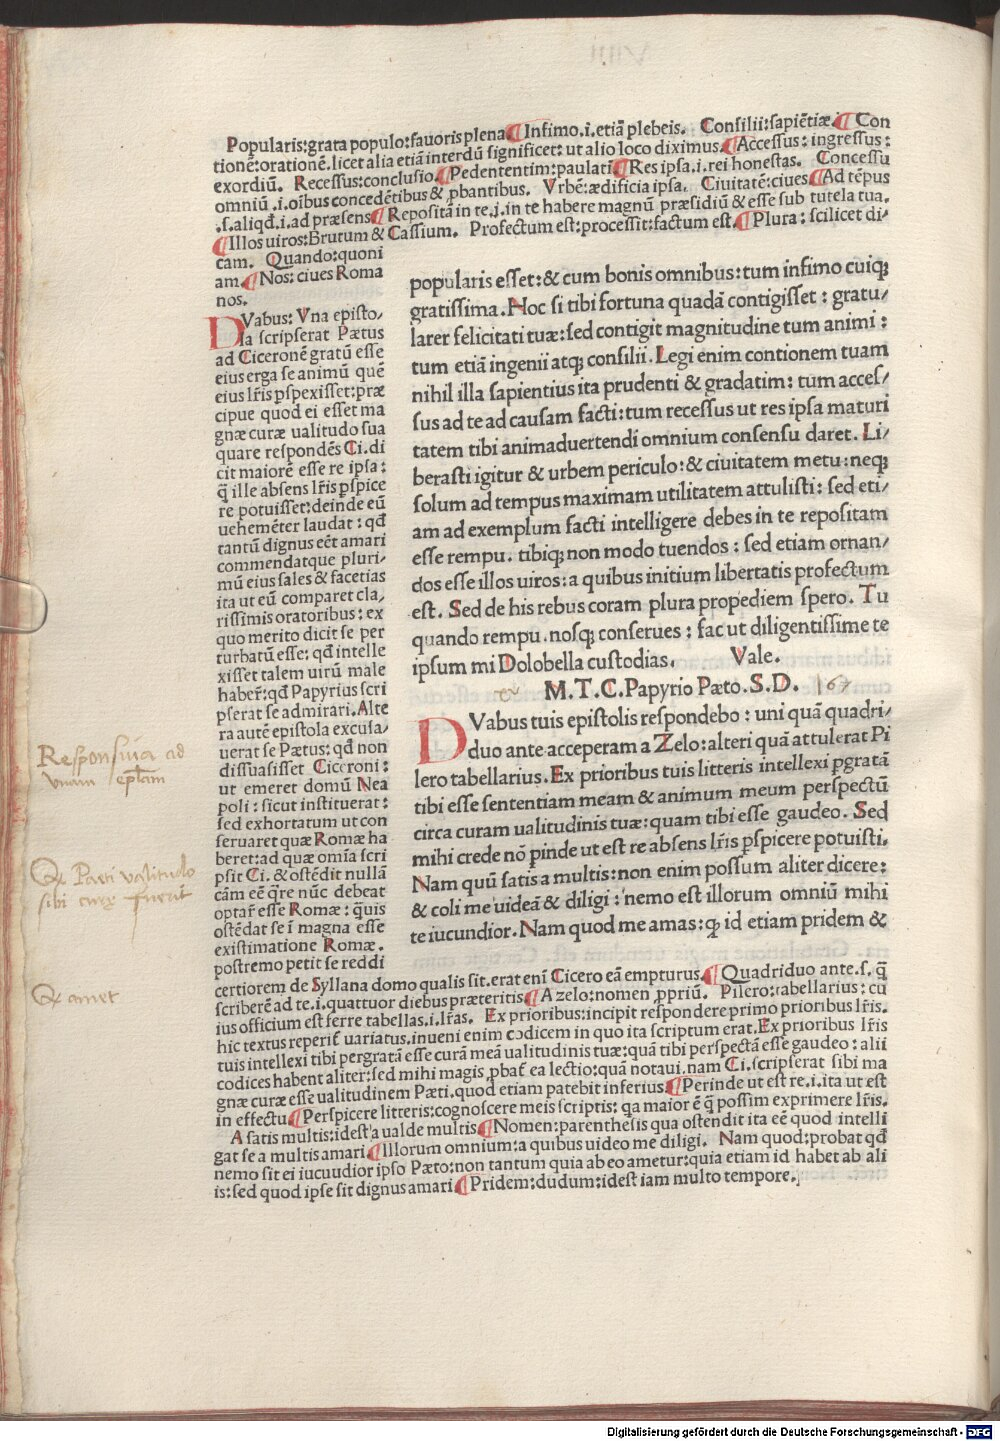 Popularis:grata populo:fauoris plena¶Infimo.i.etiā plebeis. Consilii:sapiētiæ¶Con
tionē:orationē.licet alia etiā interdū significet:ut alio loco diximus¶Accessus:ingressus:
exordiū. Recessus:conclusio¶Pedententim:paulati¶Res ipsa.i.rei honestas. Concessu
omniū.i.oībus concedētibus & ꝓbantibus. Vrbē:ædificia ipsa. Ciuitatē:ciues¶Ad tēpus
.s.aliqđ.i.ad præsens¶Repositā in te.i.in te habere magnū præsidiū & esse sub tutela tua.
¶Illos uiros:Brutum & Cassium. Profectum est:processit:factum est.¶Plura:scilicet di-
cam. Quando:quoni
am.¶Nos:ciues Roma
nos.
DVabus:Vna episto/
la scripserat Pætus
ad Ciceronē gratū esse
eius erga se animū quē
eius lr̄is ꝑspexisset:præ
cipue quod ei esset ma
gnæ curæ ualitudo sua
quare respondēs Ci.di
cit maiorē esse re ipsa:
q̄ ille absens lr̄is ꝑspice
re potuisset:deinde eū
uehemēter laudat:qđ
tantū dignus eēt amari
commendatque pluri-
mū eius sales & facetias
ita ut eū comparet cla/
rissimis oratoribus:ex
quo merito dicit se per
turbatū esse:qđ intelle
xisset talem uirū male
haber̄:qđ Papyrius scri
pserat se admirari.Alte
ra autē epistola excusa/
uerat se Pætus:qđ non
dissuasisset Ciceroni:
ut emeret domū Nea
poli:sicut instituerat:
sed exhortatum ut con
seruaret quæ Romæ ha
beret:ad quæ omīa scri
psit Ci.& ostēdit nullā
cām eē q̄re nūc debeat
optar̄ esse Romæ:q̄uis
ostēdat se ī magna esse
existimatione Romæ.
postremo petit se reddi
popularis esset:& cum bonis omnibus:tum infimo cuiqꝫ
gratissima.Noc si tibi fortuna quadā contigisset:gratu/
larer felicitati tuæ:sed contigit magnitudine tum animi:
tum etiā ingenii atqꝫ consilii.Legi enim contionem tuam
nihil illa sapientius ita prudenti & gradatim:tum acces/
sus ad te ad causam facti:tum recessus ut res ipsa maturi
tatem tibi animaduertendi omnium consensu daret.Li/
berasti igitur & urbem periculo:& ciuitatem metu:neqꝫ
solum ad tempus maximam utilitatem attulisti:sed eti/
am ad exemplum facti intelligere debes in te repositam
esse rempu.tibiqꝫ non modo tuendos:sed etiam ornan/
dos esse illos uiros:a quibus initium libertatis profectum
est.Sed de his rebus coram plura propediem spero.Tu
quando rempu.nosqꝫ conserues:fac ut diligentissime te
ipsum mi Dolobella custodias. Vale.
M.T.C.Papyrio Pæto.S.D. 167
DVabus tuis epistolis respondebo:uni quā quadri/
duo ante acceperam a Zelo:alteri quā attulerat Pi
lero tabellarius.Ex prioribus tuis litteris intellexi ꝑgratā
tibi esse sententiam meam & animum meum perspectū
circa curam ualitudinis tuæ:quam tibi esse gaudeo.Sed
mihi crede nō ꝑinde ut est re absens lr̄is ꝑspicere potuisti.
Nam quū satis a multis:non enim possum aliter dicere:
& coli me uideā & diligi:nemo est illorum omniū mihi
te iucundior.Nam quod me amas:ꝙ id etiam pridem &
certiorem de Syllana domo qualis sit.erat enī Cicero eā empturus.¶Quadriduo ante.s.q̄
scriberē ad te.i.quattuor diebus præteritis¶A zelo:nomen ꝓpriū. Pilero:tabellarius:cu
ius officium est ferre tabellas.i.lr̄as. Ex prioribus:incipit respondere primo prioribus lr̄is.
hic textus reperit̄ uariatus.inueni enim codicem in quo ita scriptum erat.Ex prioribus lr̄is
tuis intellexi tibi pergratā esse curā meā ualitudinis tuæ:quā tibi perspectā esse gaudeo:alii
codices habent aliter:sed mihi magis ꝓbat̄ ea lectio:quā notaui.nam Ci.scripserat sibi ma
gnæ curæ esse ualitudinem Pæti.quod etiam patebit inferius¶Perinde ut est re.i.ita ut est
in effectu¶Perspicere litteris:cognoscere meis scriptis:qa maior ē q̄ possim exprimere lr̄is.
A satis multis:idest a ualde multis¶Nomen:parenthesis qua ostendit ita eē quod intelli
gat se a multis amari¶Illorum omnium:a quibus uideo me diligi. Nam quod:probat qđ
nemo sit ei iucuudior ipso Pæto:non tantum quia ab eo ametur:quia etiam id habet ab ali
is:sed quod ipse sit dignus amari¶Pridem:dudum:idest iam multo tempore.
Responsiua ad
vnam ep̄lam
Q Paeti valitudo
sibi cure fuerit
Q amet
Digitalisierung gefördert durch die Deutsche Forschungsgemeinschaft - DFG